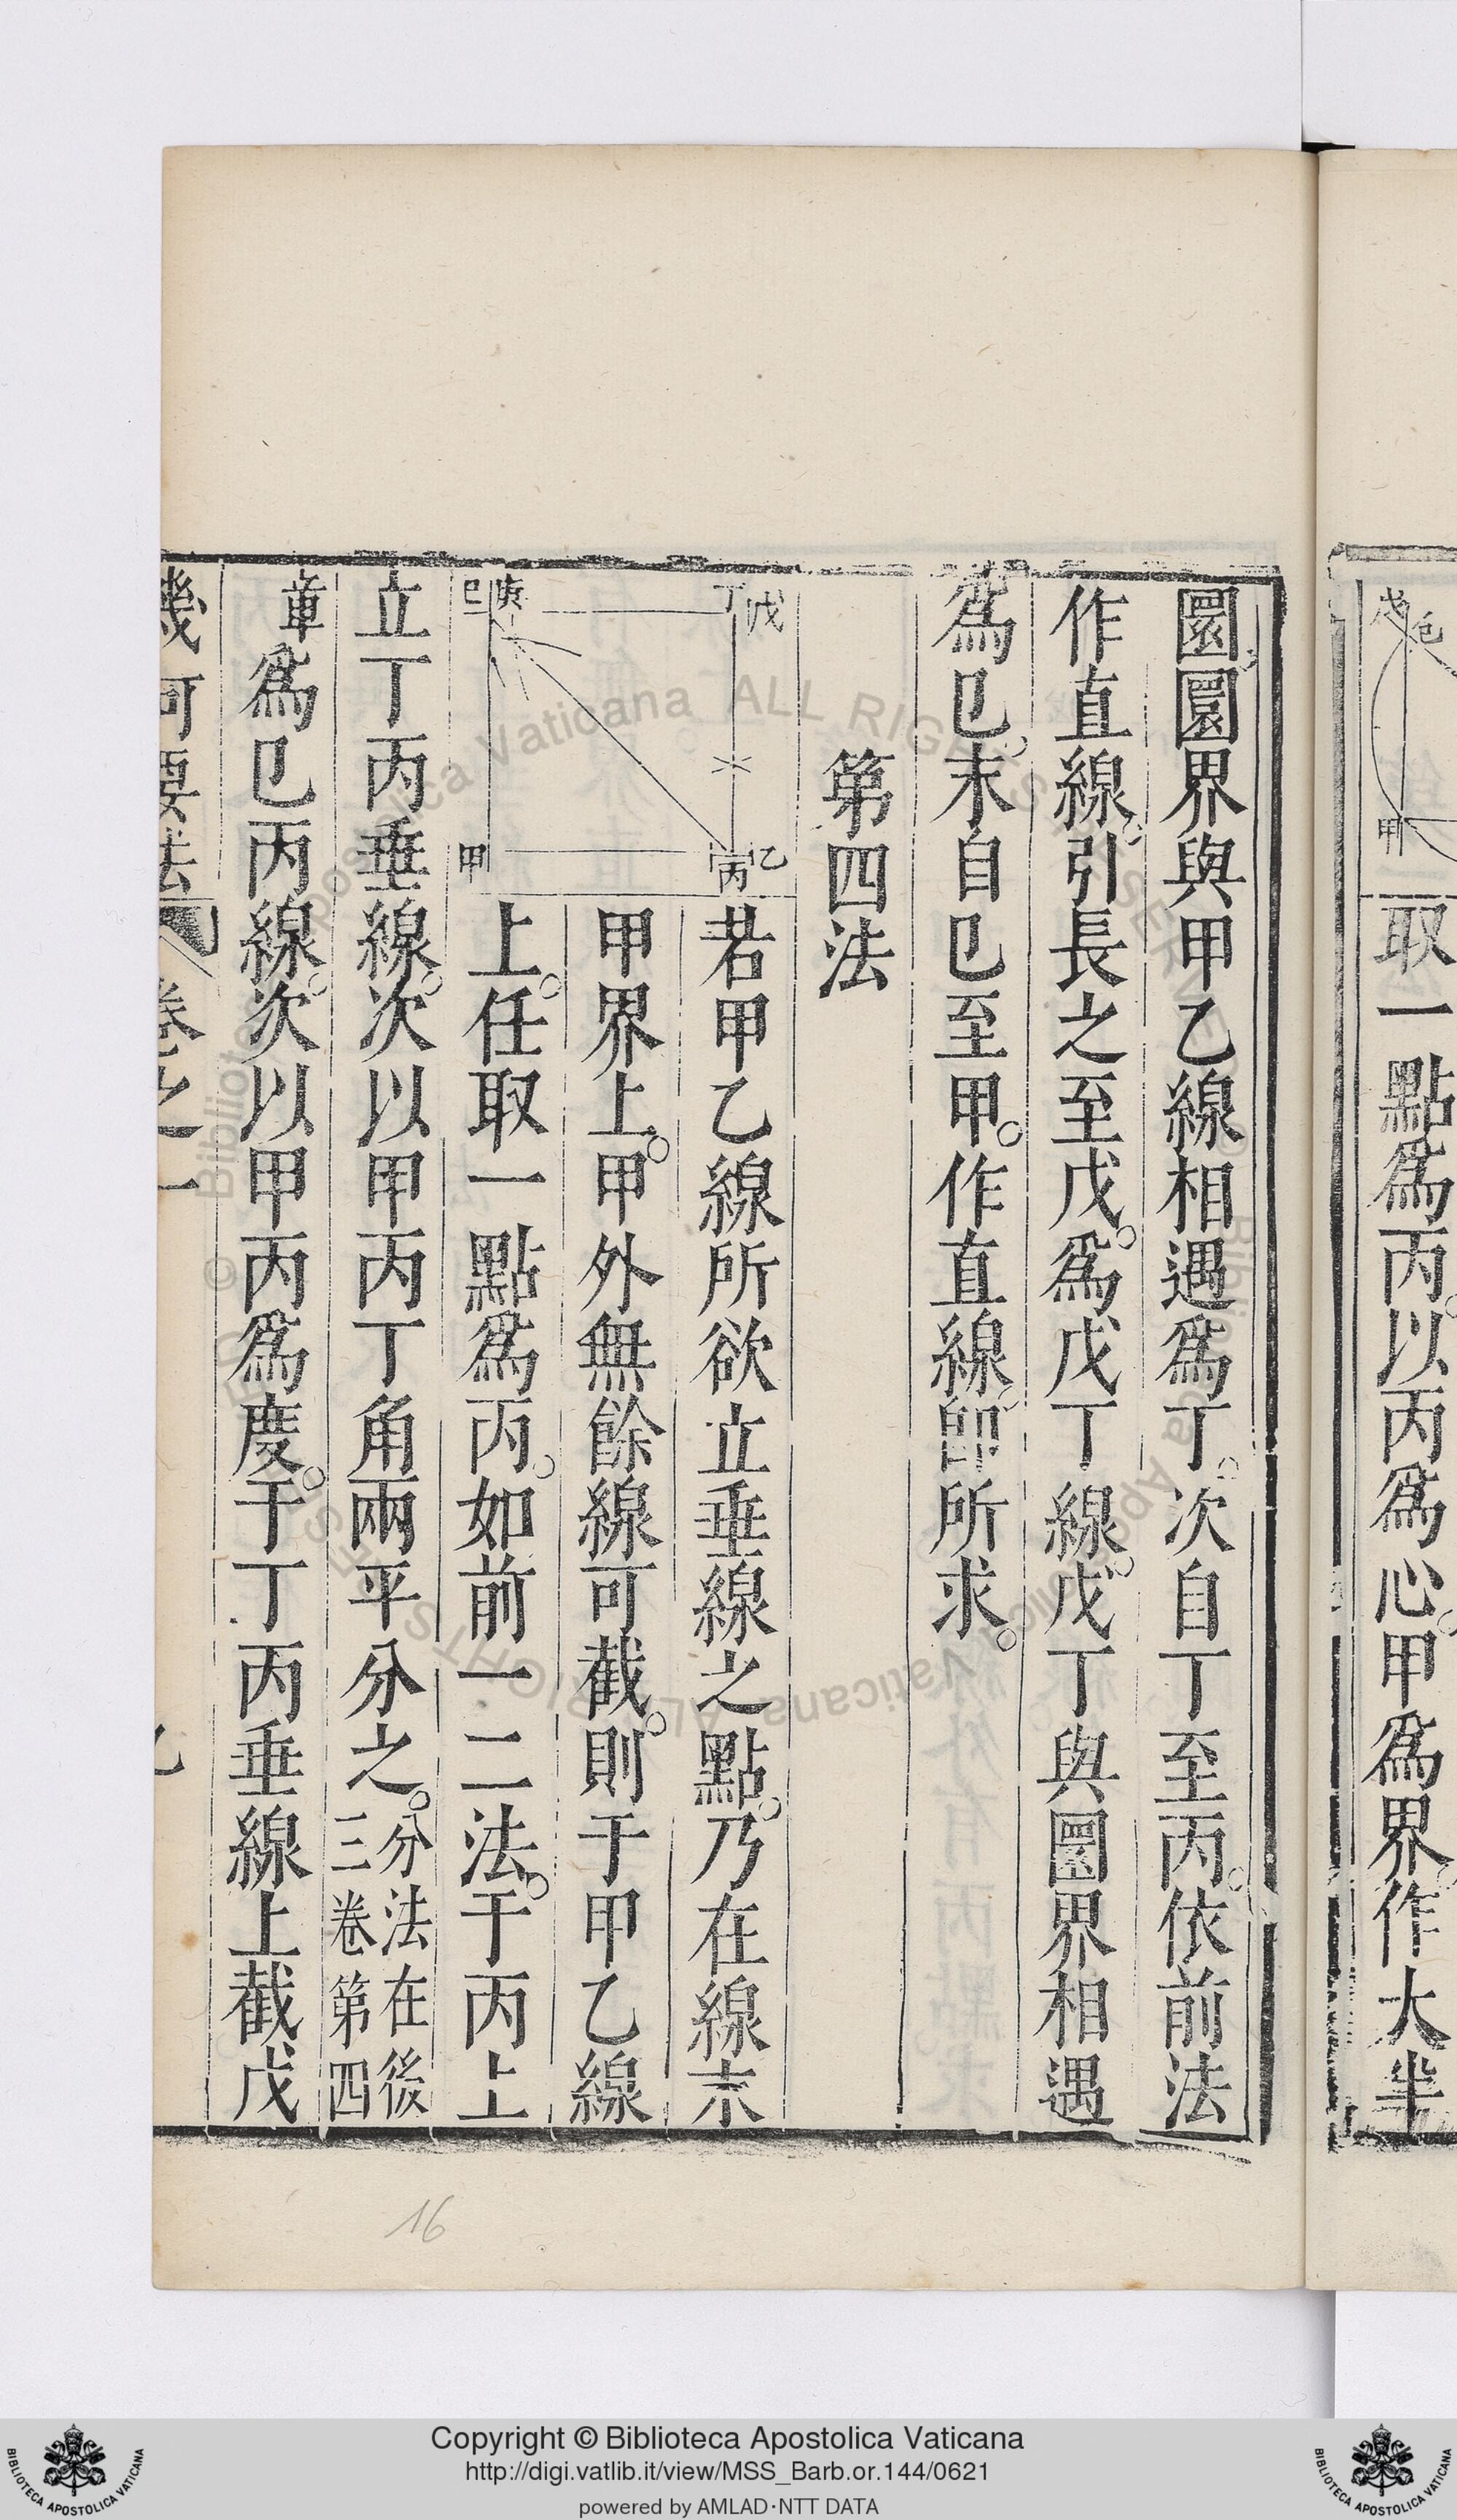 取一點爲丙以丙爲心甲爲界作大半
戊
己
甲
圜圜界與甲乙線相遇爲丁次自丁至丙依前法
作直線引長之至戊爲戊丁線戊丁與圜界相遇
爲已末自已至甲作直線卽所求
第四法
戊
丁
庚
已
乙
丙
甲
若甲乙線所欲立垂線之點乃在線末
甲界上甲外無餘線可截則于甲乙線
上任取一點爲丙如前一二法于丙上
立丁丙垂線次以甲丙丁角兩平分之分法在後三卷第四
章爲已丙線次以甲丙爲度于丁丙垂線上截戊
幾何要法 卷之一
16
Copyright © Biblioteca Apostolica Vaticana
http://digi.vatlib.it/view/MSS_Barb.or.144/0621
powered by AMLAD·NTT DATA
BIBLIOTECA APOSTOLICA VATICANA
BIBLIOTECA APOSTOLICA VATICANA